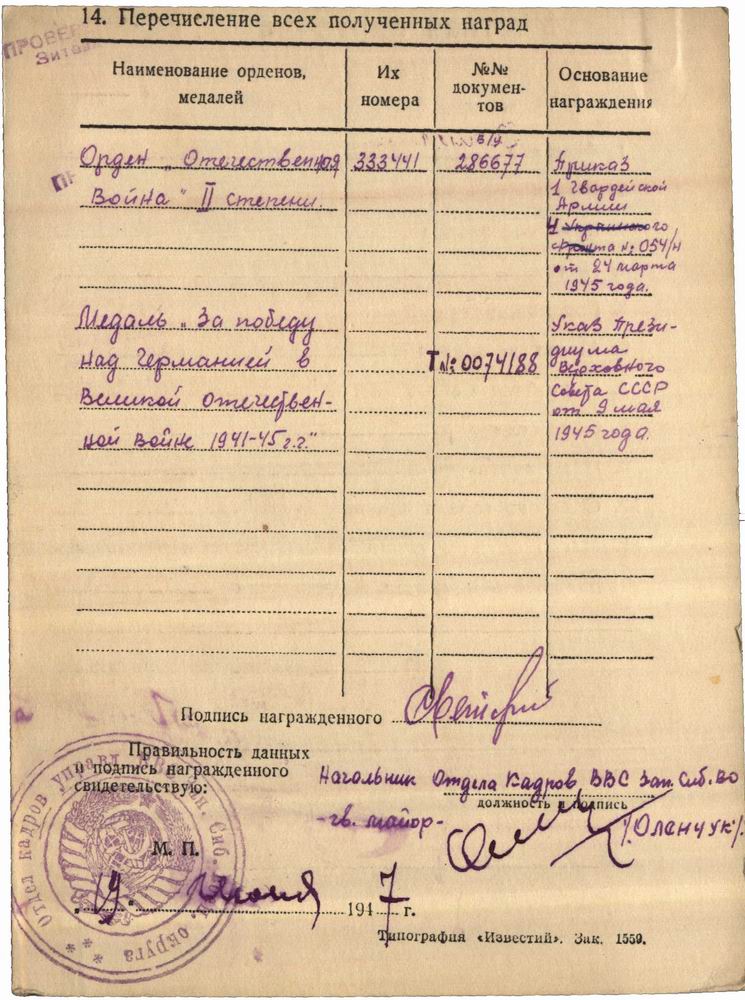 14. Перечисление всех полученных наград
ПРОВЕ
Наименование орденов,
медалей
Их
номера
№№
докумен-
тов
Основание
награждения
Орден „Отечественная
Война" II степени.
333441
б/у
286677
Приказ
1 Гвардейской
Армии
4 Украинского
Фронта №: 054/н
от 24 марта
1945 года.
Медаль „За победу
над Германией в
Великой отечествен-
ной войне 1941-45 г.г."
Т №: 0074188
Указ Прези-
диума
Верховного
Совета СССР
от 9 мая
1945 года.
Подпись награжденного
Правильность данных
и подпись награжденного
свидетельствую:
Начальник Отдела Кадров ВВС Зап. Сиб. ВО
должность и подпись
-гв. майор-
/Оленчук/.
М. П.
Отдел кадров управл. округа
19. Июня 1947 г.
Типография «Известий». Зак. 1559.